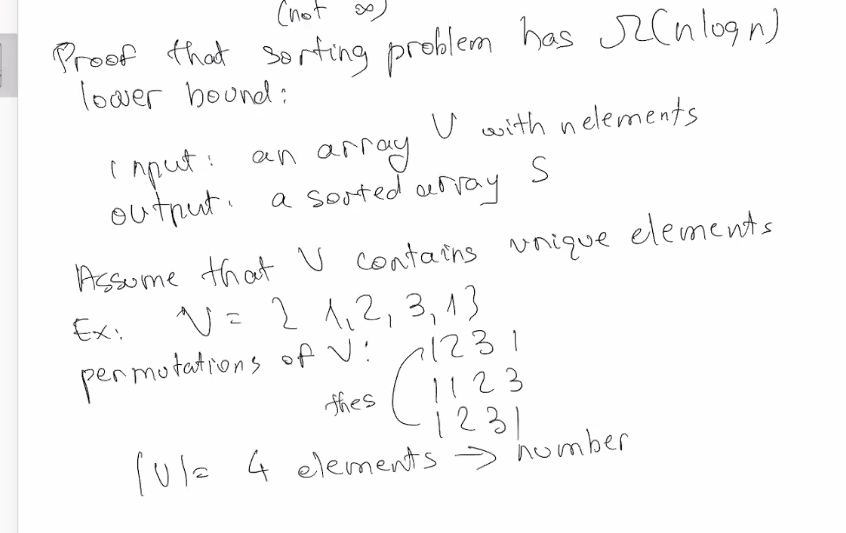 (not ∞)
Proof that sorting problem has Ω(n log n)
lower bound:
input: an array U with n elements
output: a sorted array S
Assume that U contains unique elements
Ex: V = { 1, 2, 3, 1 }
permutations of V: 1 2 3 1
1 1 2 3
thes 1 2 3 1
|U| = 4 elements → number